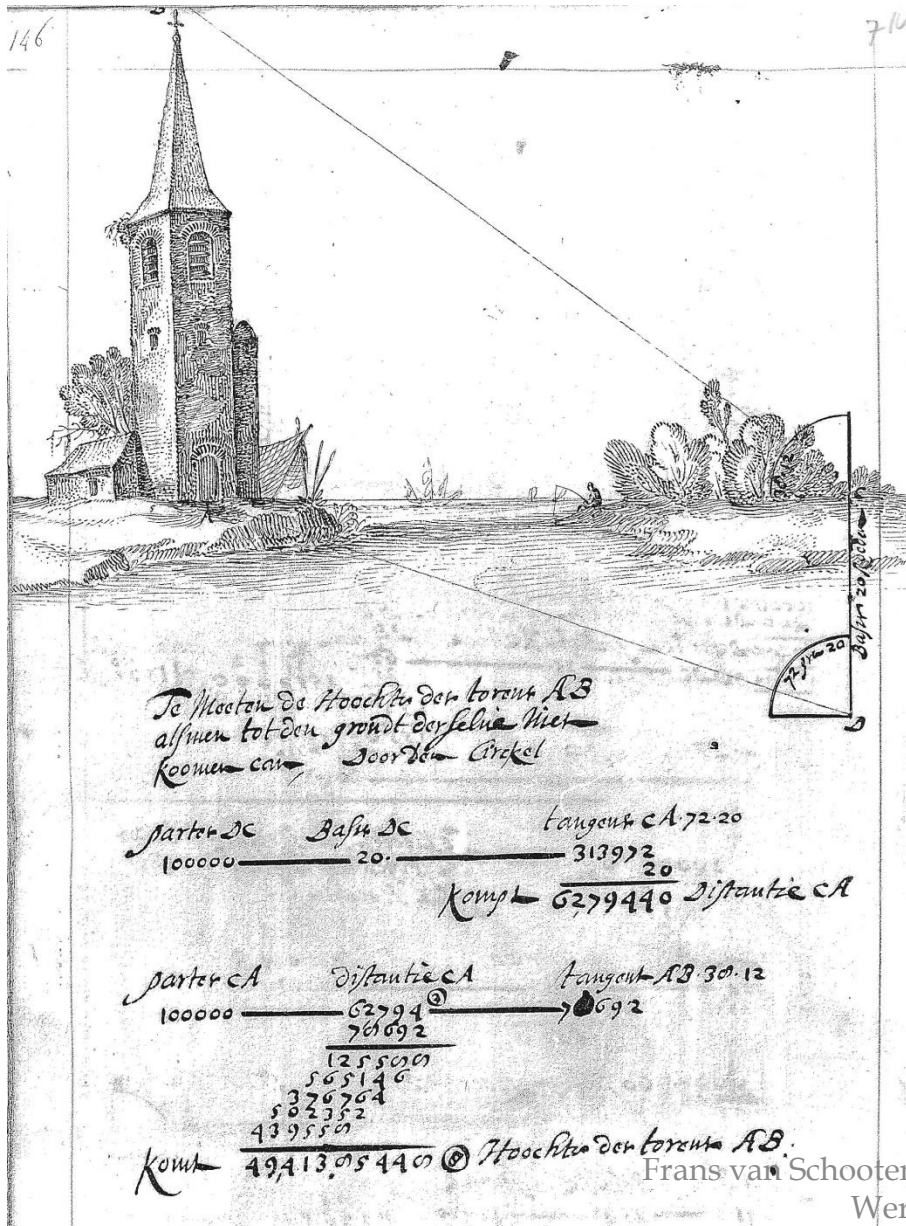 146
38.12
C
Basis 20 roeden
72 gra 20
D
Te Meeten de Hoochte des torens AB
alsmen tot den grondt derselve Niet
koomen can, Door den Cirkel
partes DC Basis DC tangens CA 72.20
100000 20. 313972
20
kompt 6279440 Distantie CA
partes CA distantie CA tangens AB 38.12
100000 62794 ② 78692
78692
125588
565146
376764
502352
439558
komt 49,41385448 ⑧ Hoochte des torens AB.
Frans van Schooten
Wer